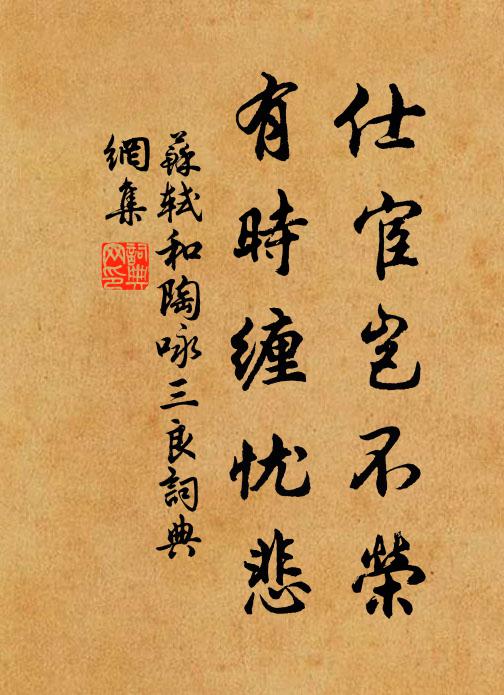 仕宦岂不榮
有時纏忧悲
蘇軾和陶咏三良詞典
網集
詞典網印